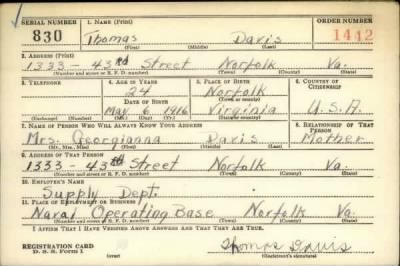 SERIAL NUMBER 1. NAME (Print) ORDER NUMBER
830 Thomas Davis 1442
(First) (Middle) (Last)
2. ADDRESS (Print)
1333 - 43rd Street Norfolk Va.
(Number and street or R. F. D. number) (Town) (County) (State)
3. TELEPHONE 4. AGE IN YEARS 5. PLACE OF BIRTH 6. COUNTRY OF CITIZENSHIP
24 Norfolk
DATE OF BIRTH (Town or county)
May 6 1916 Virginia U.S.A.
(Exchange) (Number) (Mo.) (Day) (Yr.) (State or country)
7. NAME OF PERSON WHO WILL ALWAYS KNOW YOUR ADDRESS 8. RELATIONSHIP OF THAT PERSON
Mrs. Georgianna Davis Mother
(Mr., Mrs., Miss) (First) (Middle) (Last)
9. ADDRESS OF THAT PERSON
1333 - 43rd Street Norfolk Va.
(Number and street or R. F. D. number) (Town) (County) (State)
10. EMPLOYER'S NAME
Supply Dept.
11. PLACE OF EMPLOYMENT OR BUSINESS
Naval Operating Base Norfolk Va.
(Number and street or R. F. D. number) (Town) (County) (State)
I AFFIRM THAT I HAVE VERIFIED ABOVE ANSWERS AND THAT THEY ARE TRUE.
REGISTRATION CARD Thomas Davis
D. S. S. Form 1 (over) (Registrant's signature)